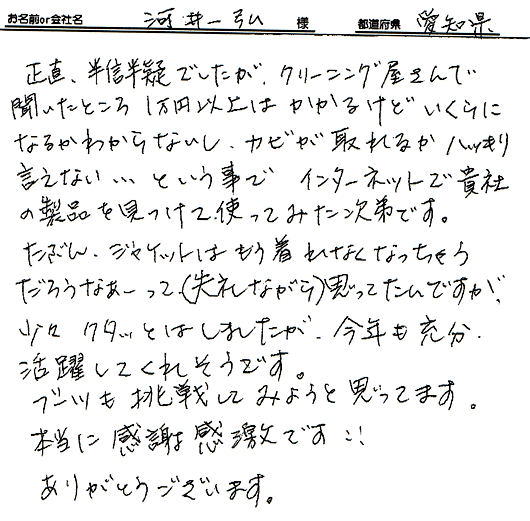 お名前or会社名 河井一弘 様 都道府県 愛知県
正直、半信半疑でしたが、クリーニング屋さんで
聞いたところ1万円以上はかかるけどいくらに
なるかわからないし、カビが取れるかハッキリ
言えない…という事で インターネットで貴社
の製品を見つけて使ってみた次第です。
たぶん、ジャケットはもう着れなくなっちゃう
だろうなあーって、(失礼しながら)思ってたんですが、
少々クタッとはしましたが、今年も充分、
活躍してくれそうです。
ブーツも挑戦してみようと思ってます。
本当に感謝感激です!!
ありがとうございます。